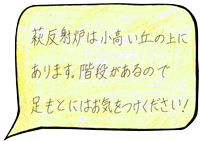 萩反射炉は小高い丘の上に
あります。階段があるので
足もとにはお気をつけください!